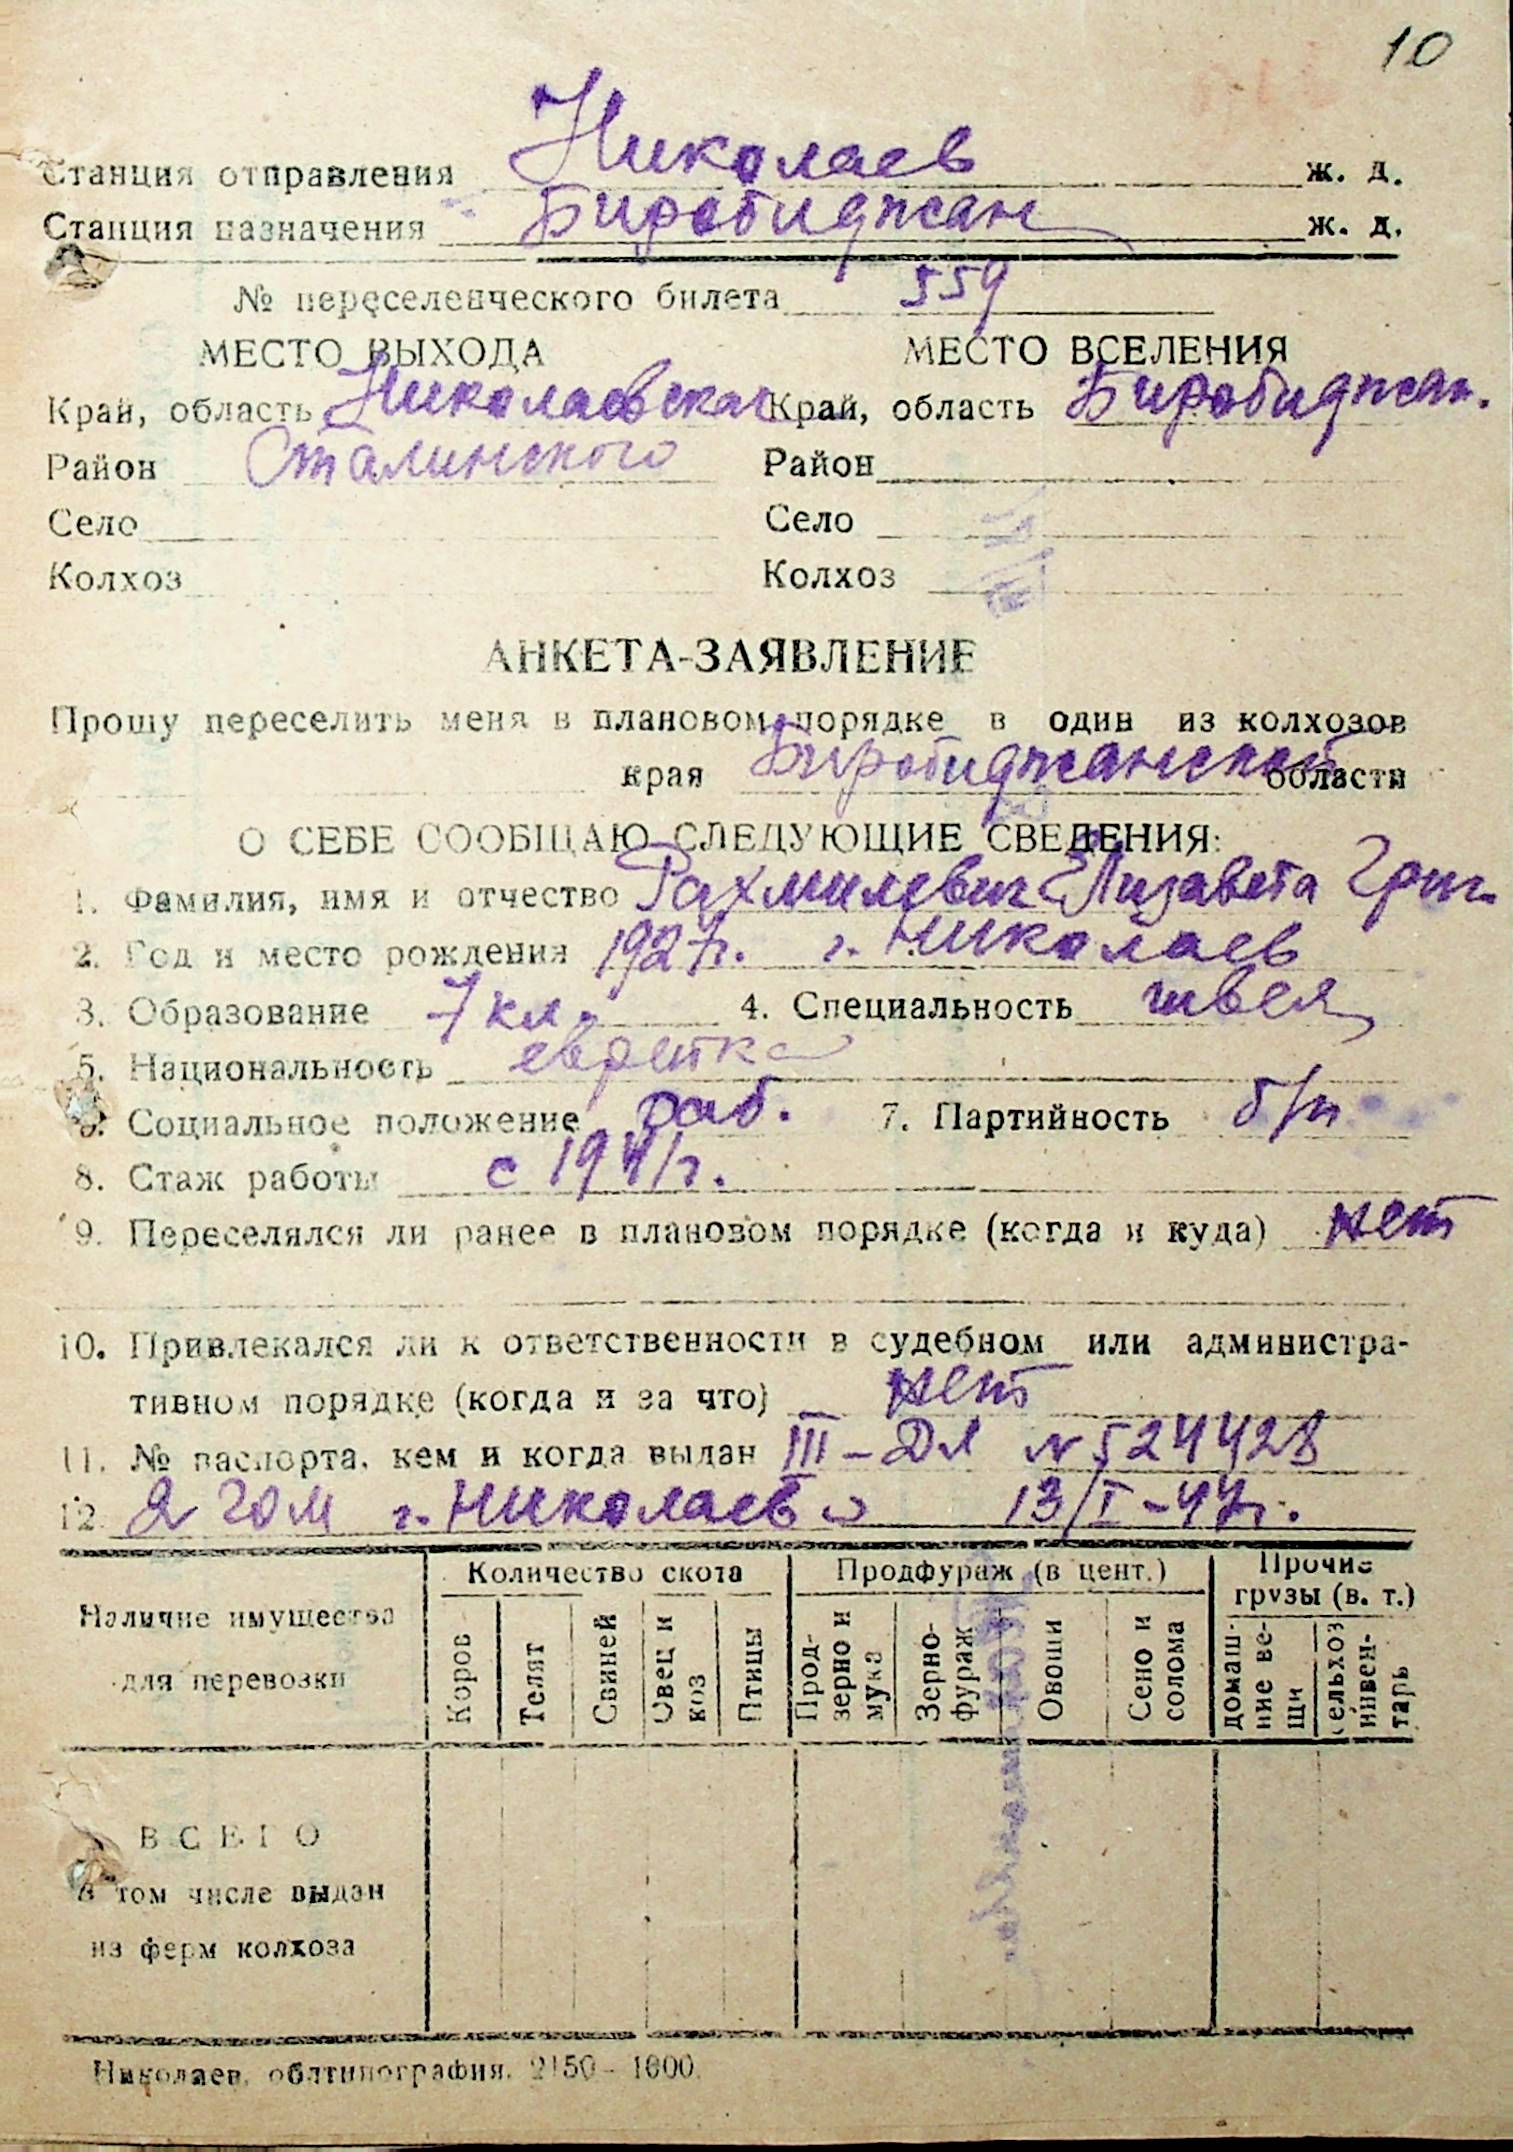 10
Станция отправления Николаев ж. д.
Станция назначения Биробиджан ж. д.
№ переселенческого билета 559
МЕСТО ВЫХОДА МЕСТО ВСЕЛЕНИЯ
Край, область Николаевская Край, область Биробиджан.
Район Сталинского Район
Село Село
Колхоз Колхоз
АНКЕТА-ЗАЯВЛЕНИЕ
Прошу переселить меня в плановом порядке в один из колхозов
края Биробиджанской области
О СЕБЕ СООБЩАЮ СЛЕДУЮЩИЕ СВЕДЕНИЯ:
1. Фамилия, имя и отчество Рахмилевич Елизавета Григ.
2. Год и место рождения 1927г. г. Николаев
3. Образование 7 кл. 4. Специальность швея
5. Национальность еврейка
6. Социальное положение раб. 7. Партийность б/п
8. Стаж работы с 1941г.
9. Переселялся ли ранее в плановом порядке (когда и куда) нет
10. Привлекался ли к ответственности в судебном или администра-
тивном порядке (когда и за что) нет
11. № паспорта, кем и когда выдан III-ДЛ № 524428
12. 2 ГОМ г. Николаев 13/I-47г.
Наличие имущества для перевозки
Количество скота Продфураж (в цент.) Прочие грузы (в. т.)
Коров Телят Свиней Овец и коз Птицы Прод-зерно и мука Зерно-фураж Овощи Сено и солома домаш-ние ве-щи сельхоз инвен-тарь
ВСЕГО
в том числе выдан
из ферм колхоза
Николаев, облтипография. 2150-1000.